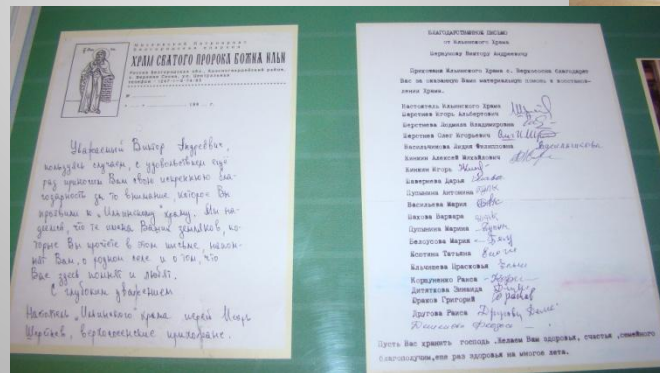 Московский Патриархат
Белгородская епархия
ХРАМ СВЯТОГО ПРОРОКА БОЖИЯ ИЛЬИ
Россия Белгородская обл., Красногвардейский район,
с. Верхняя Сосна, ул. Центральная
телефон
199 г.
Уважаемый Виктор Андреевич,
пользуясь случаем, с удовольствием еще
раз приносим Вам свою искреннюю бла-
годарность за то внимание, которое Вы
проявили к Ильинскому храму. Мы на-
деемся, что те имена Ваших земляков, ко-
торые Вы прочтете в этом письме, напом-
нят Вам о родном селе и о том, что
Вас здесь помнят и любят.
С глубоким уважением
Настоятель "Ильинского" храма иерей Игорь
верхососенские прихожане.
БЛАГОДАРСТВЕННОЕ ПИСЬМО
от Ильинского Храма
Виктору Андреевичу
Прихожане Ильинского Храма с. Верхососна благодарят
Вас за оказанную Вами материальную помощь в восстанов-
лении Храма.
Настоятель Ильинского Храма
Игорь Альбертович
Людмила Владимировна
Олег Игорьевич
Васильченкова Лидия Филипповна
Бинкин Алексей Михайлович
Бинкин Игорь
Шавернева Дарья
Пупынина Антонина
Васильева Мария
Шахова Варвара
Пупынина Марина
Белоусова Мария
Костина Татьяна
Ильичева Прасковья
Корщуненко Раиса
Дитяткова Зинаида
Юраков Григорий
Другова Раиса
Пусть Вас хранит господь. Желаем Вам здоровья, счастья, семейного
благополучия, еще раз здоровья на многое лета.